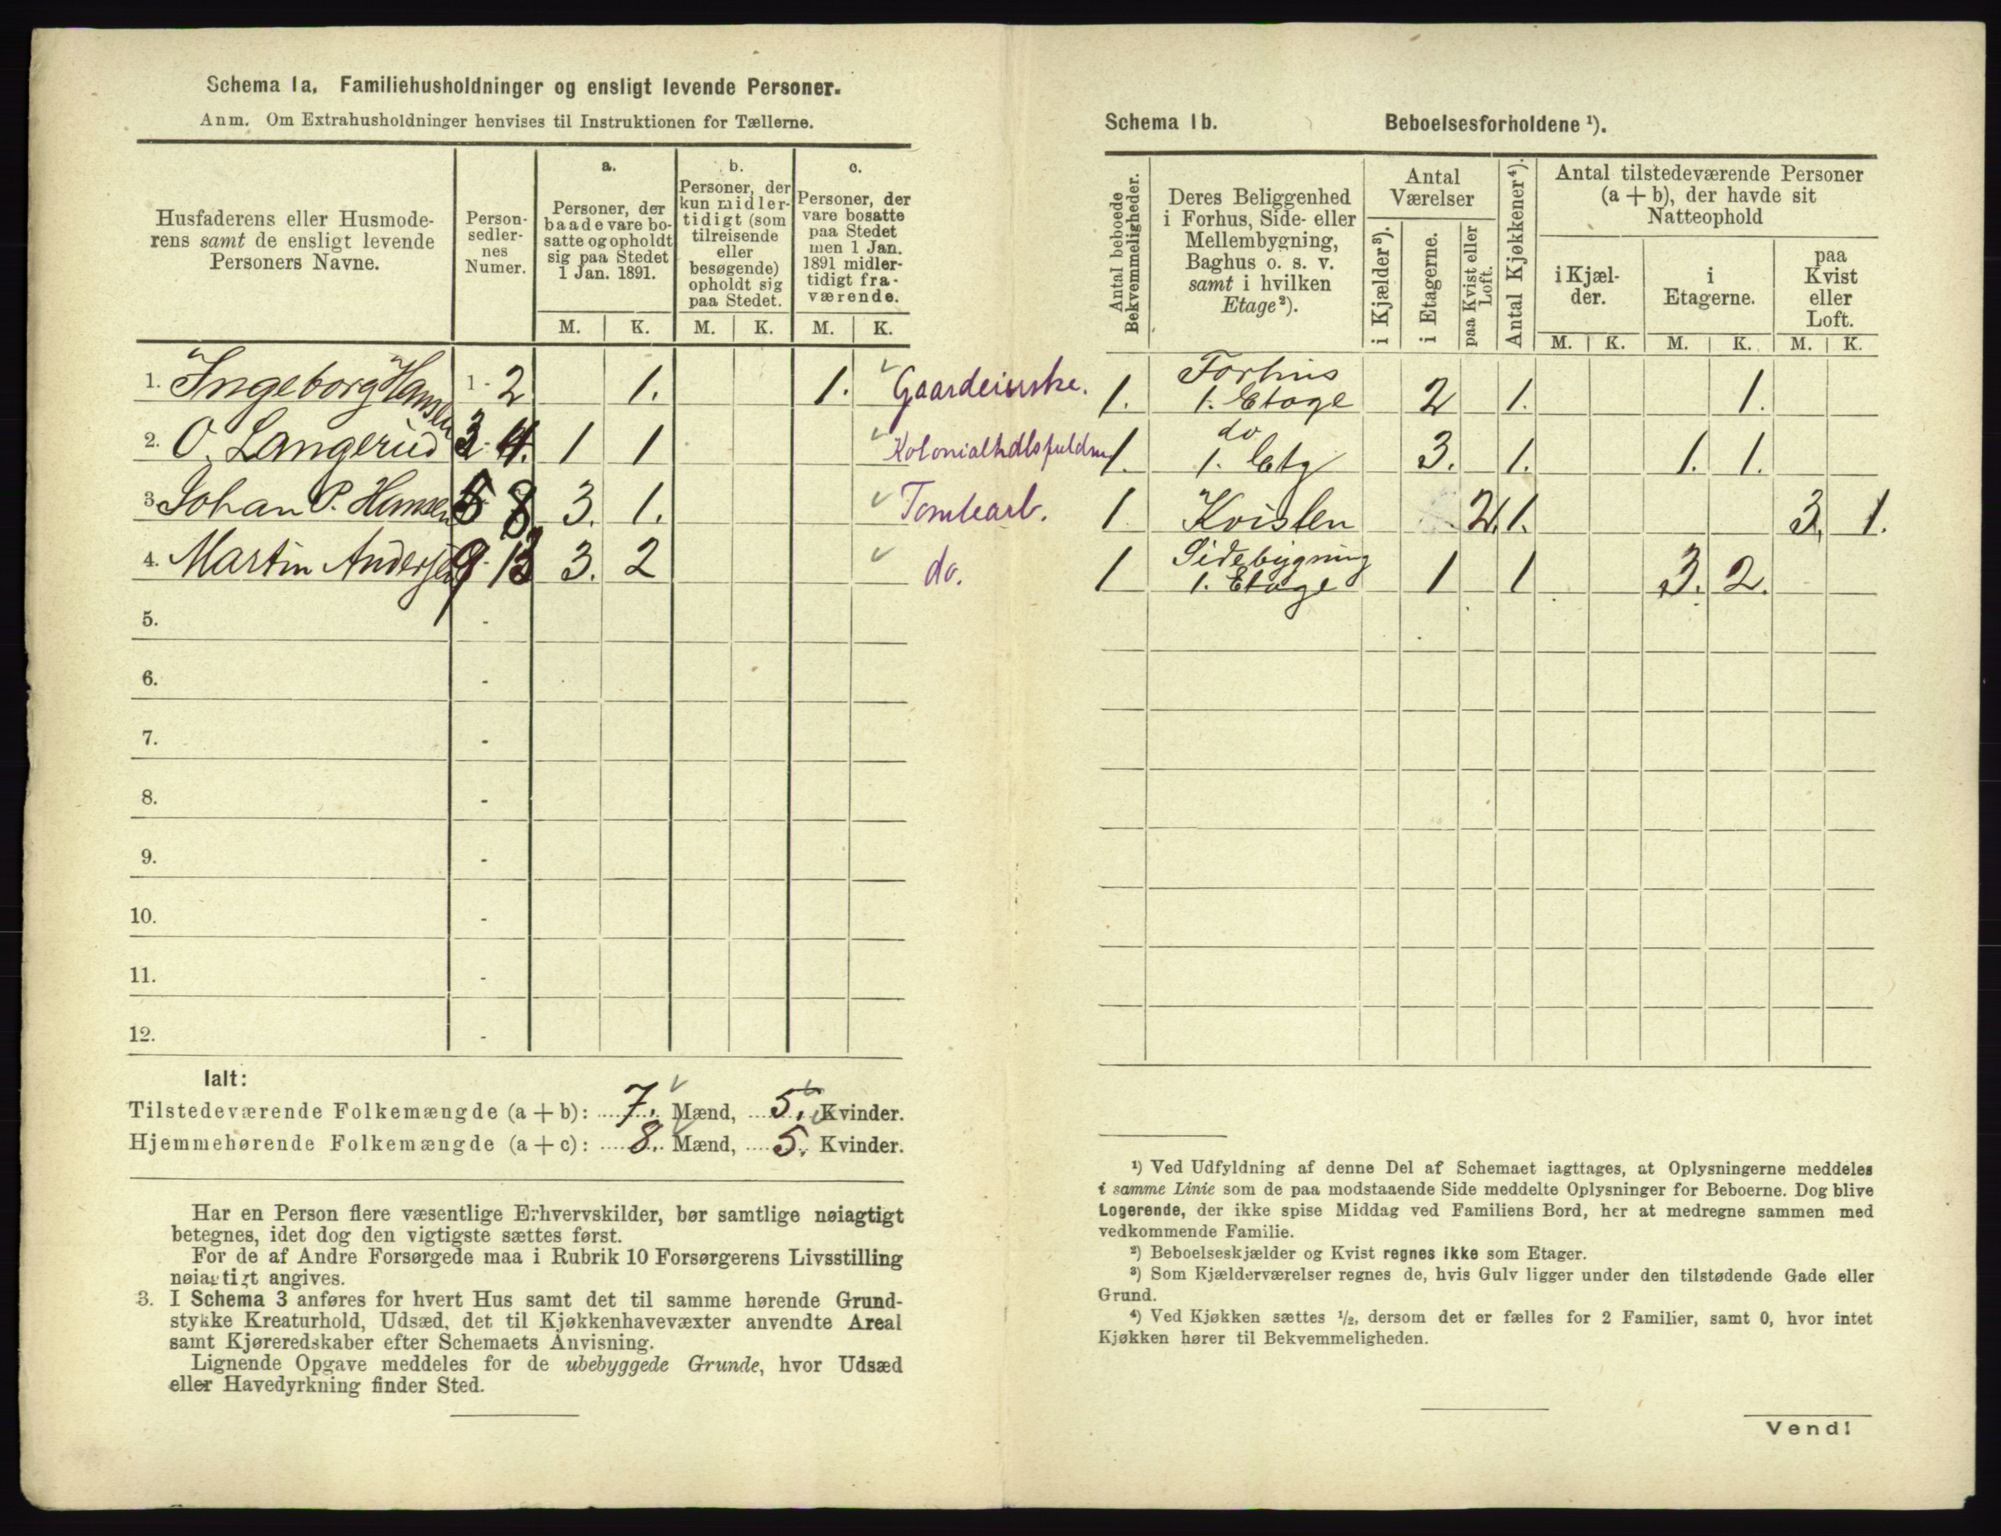 Schema 1a. Familiehusholdninger og ensligt levende Personer.
Anm. Om Extrahusholdninger henvises til Instruktionen for Tællerne.
Husfaderens eller Husmode-
rens samt de ensligt levende
Personers Navne.
Person-
sedler-
nes
Numer.
a.
Personer, der
baade vare bo-
satte og opholdt
sig paa Stedet
1 Jan. 1891.
b.
Personer, der
kun midler-
tidigt (som
tilreisende
eller
besøgende)
opholdt sig
paa Stedet.
c.
Personer, der
vare bosatte
paa Stedet
men 1 Jan.
1891 midler-
tidigt fra-
værende.
M. K. M. K. M. K.
1. Ingeborg Hansen 1 - 2 1. 1. Gaardeierske.
2. O. Langerud 3 - 4. 1 1
3 Johan P. Hansen 5 8. 3. 1.
4. Martin Andersen 9 - 13 3. 2 do.
5. -
6. -
7. -
8. -
9. -
10. -
11. -
12. -
Ialt:
Tilstedeværende Folkemængde (a + b): 7. Mænd, 5. Kvinder.
Hjemmehørende Folkemængde (a + c): 8. Mænd, 5. Kvinder.
Har en Person flere væsentlige Erhvervskilder, bør samtlige nøiagtigt
betegnes, idet dog den vigtigste sættes først.
For de af Andre Forsørgede maa i Rubrik 10 Forsørgerens Livsstilling
nøiagtigt angives.
3. I Schema 3 anføres for hvert Hus samt det til samme hørende Grund-
stykke Kreaturhold, Udsæd, det til Kjøkkenhavevæxter anvendte Areal
samt Kjøreredskaber efter Schemaets Anvisning.
Lignende Opgave meddeles for de ubebyggede Grunde, hvor Udsæd
eller Havedyrkning finder Sted.
Schema 1b. Beboelsesforholdene ¹).
Antal beboede
Bekvemmeligheder.
Deres Beliggenhed
i Forhus, Side- eller
Mellembygning,
Baghus o. s. v.
samt i hvilken
Etage²).
Antal
Værelser
i Kjælder³).
i Etagerne.
paa Kvist eller
Loft.
Antal Kjøkkener⁴).
Antal tilstedeværende Personer
(a + b), der havde sit
Natteophold
i Kjæl-
der.
i
Etagerne.
paa
Kvist
eller
Loft.
M. K. M. K. M. K.
1. Forhus
1. Etage 2 1. 1.
1. do
1. Etg 3. 1. 1. 1.
1 Kvisten 2. 1. 3. 1.
1 Sidebygning
1. Etage 1 1 3. 2.
¹) Ved Udfyldning af denne Del af Schemaet iagttages, at Oplysningerne meddeles
i samme Linie som de paa modstaaende Side meddelte Oplysninger for Beboerne. Dog blive
Logerende, der ikke spise Middag ved Familiens Bord, her at medregne sammen med
vedkommende Familie.
²) Beboelseskjælder og Kvist regnes ikke som Etager.
³) Som Kjælderværelser regnes de, hvis Gulv ligger under den tilstødende Gade eller
Grund.
⁴) Ved Kjøkken sættes ½, dersom det er fælles for 2 Familier, samt 0, hvor intet
Kjøkken hører til Bekvemmeligheden.
Vend!